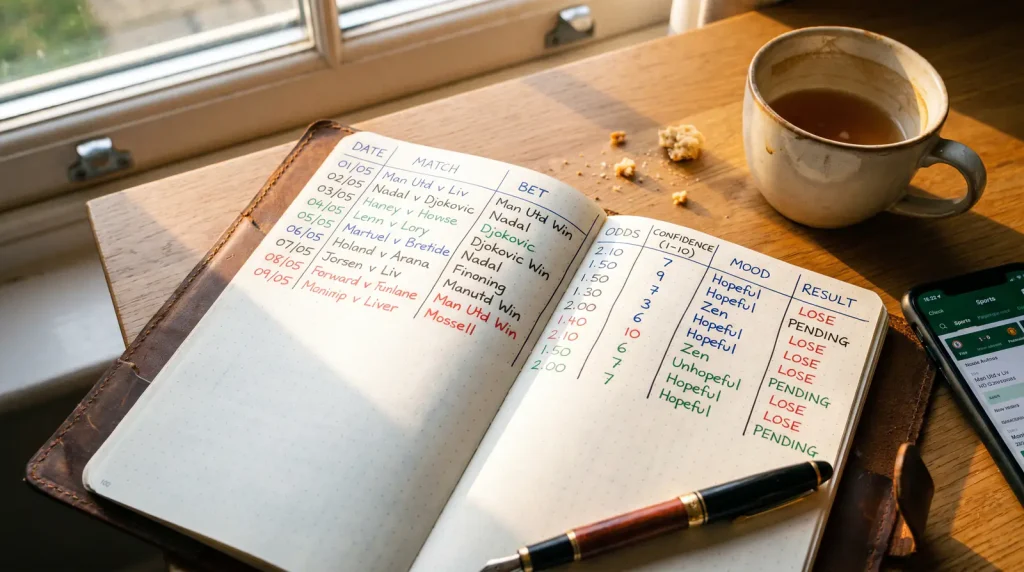 DATE MATCH BET
01/05 Man Utd v Liv Man Utd Win
02/05 Nadal v Djokovic Nadal
03/05 Haney v Howse Djokovic
04/05 Lenn v Lory Djokovic Win
05/05 Martuel v Bretide Nadal
06/05 Holand v Arana Finoning
07/05 Jorsen v Liv Manutd Win
08/05 Forward v Funlane Man Utd Win
09/05 Monimp v Liver Mossell
ODDS CONFIDENCE (1-10) MOOD RESULT
2.10 7 Hopeful LOSE
1.50 9 Hopeful PENDING
1.50 7 Zen LOSE
1.30 3 Hopeful LOSE
2.00 6 Hopeful LOSE
1.40 10 Zen PENDING
2.10 6 Unhopeful LOSE
1.50 7 Hopeful LOSE
2.00 7 Hopeful PENDING
16.22
Sports
Sports
Man Utd v Liv